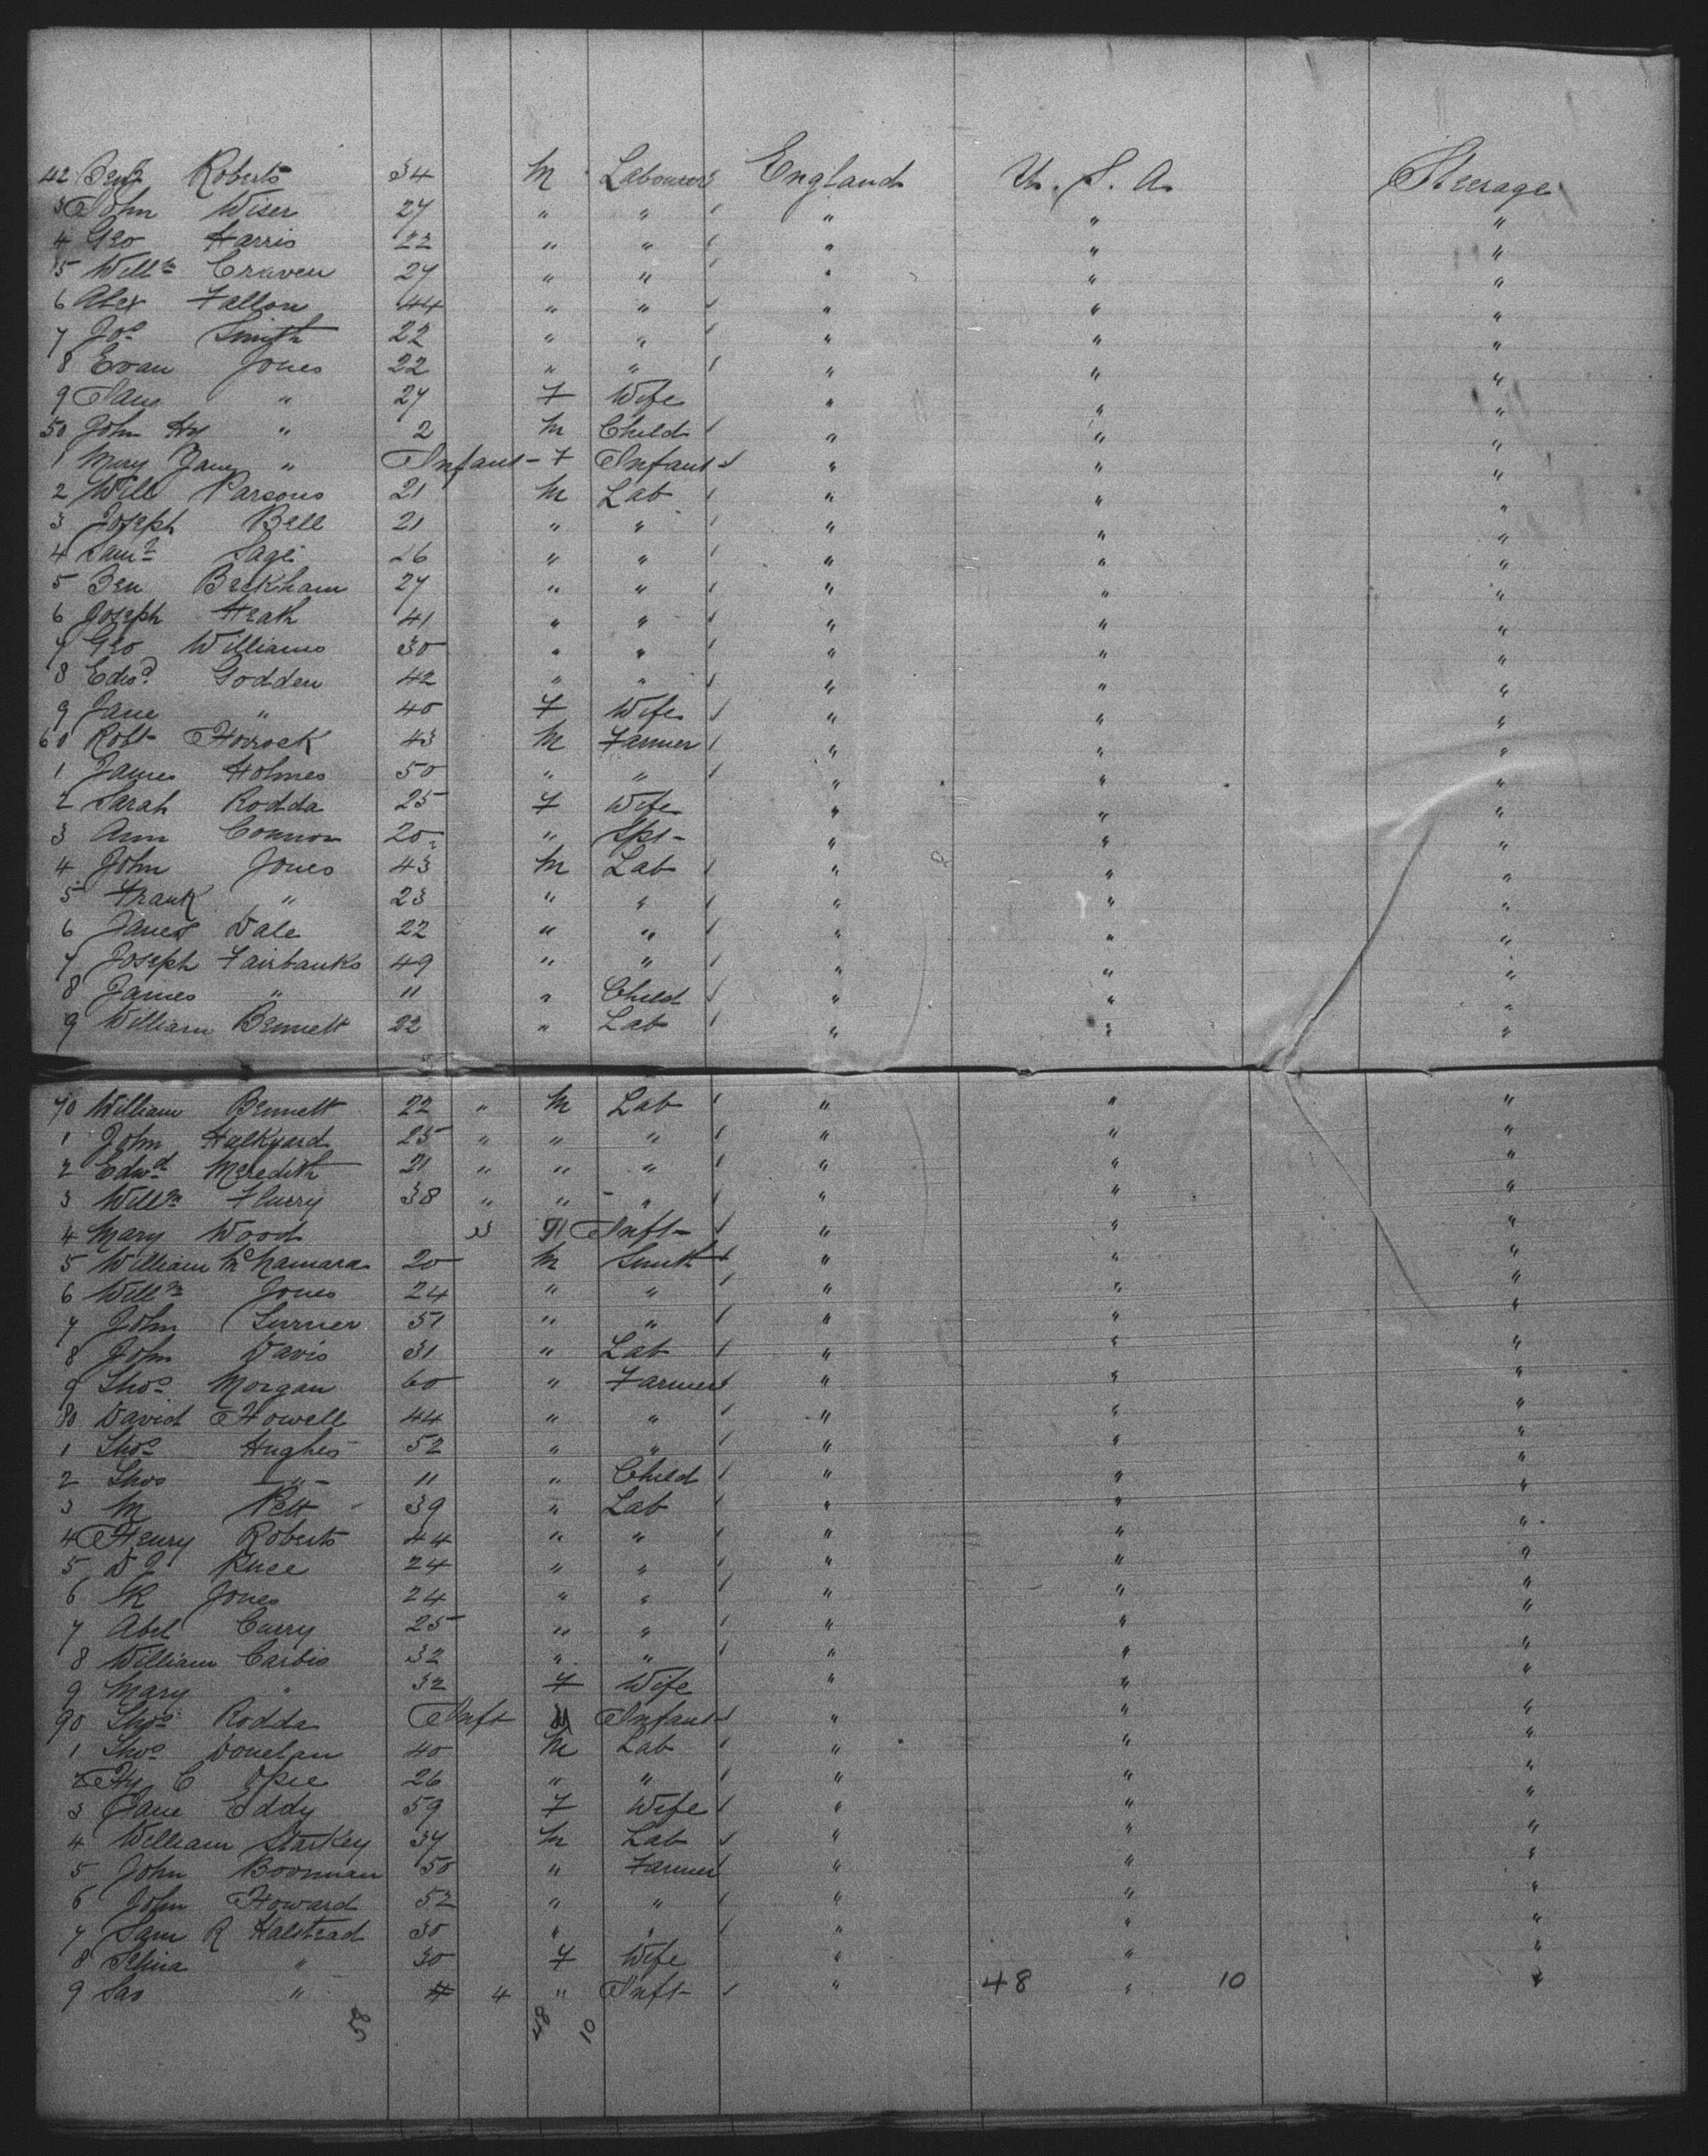 42 Benj Roberts 34 M Labourer England U. S. A. Steerage
3 John Wiser 27 " " " " "
4 Geo Harris 22 " " " " "
5 Willm Craven 27 " " " " "
6 Alex Fallon 44 " " " " "
7 Jos Smith 22 " " " " "
8 Evan Jones 22 " " " " "
9 Jane " 27 F Wife " " "
50 John Hy " 2 M Child " " "
1 Mary Jane " Infant - F Infant " " "
2 Will Parsons 21 M Lab " " "
3 Joseph Bell 21 " " " " "
4 Saml Page 26 " " " " "
5 Ben Beckham 27 " " " " "
6 Joseph Heath 41 " " " " "
7 Geo Williams 30 " " " " "
8 Edwd Godden 42 " " " " "
9 Jane " 40 F Wife " " "
60 Robt Horrock 43 M Farmer " " "
1 James Holmes 50 " " " " "
2 Sarah Rodda 25 F Wife " " "
3 Ann Connor 20 " Spr - " " "
4 John Jones 43 M Lab " " "
5 Frank " 23 " " " " "
6 James Dale 22 " " " " "
7 Joseph Fairbanks 49 " " " " "
8 James " 11 " Child " " "
9 William Bennett 22 " Lab " " "
70 William Bennett 22 " M Lab " " "
1 John Halkyard 25 " " " " " "
2 Edwd Meredith 21 " " " " " "
3 Willm Flurry 38 " " " " " "
4 Mary Wood " Inft - " " "
5 William McNamara 20 M Smith " " "
6 Willm Jones 24 " " " " "
7 John Turner 51 " " " " "
8 John Davis 31 " Lab " " "
9 Thos Morgan 60 " Farmer " " "
80 David Howell 44 " " " " "
1 Thos Hughes 52 " " " " "
2 Thos - " - 11 " Child " " "
3 M Pett 39 " Lab " " "
4 Henry Roberts 44 " " " " "
5 D J Rhee 24 " " " " "
6 Jones 24 " " " " "
7 Abel Curry 25 " " " " "
8 William Carbis 32 " " " " "
9 Mary " 32 F Wife " " "
90 Thos Rodda Inft M Infant " " "
1 Thos Donelan 40 M Lab " " "
2 Hy C Opie 26 " " " " "
3 Jane Eddy 59 F Wife " " "
4 William Starkey 37 M Lab " " "
5 John Boonman 50 " Farmer " " "
6 John Howard 52 " " " " "
7 Sam R Halstead 30 " " " " "
8 Selina " 30 F Wife " " "
9 Sas " 4 " Inft - " 48 " 10 "
58 48 10